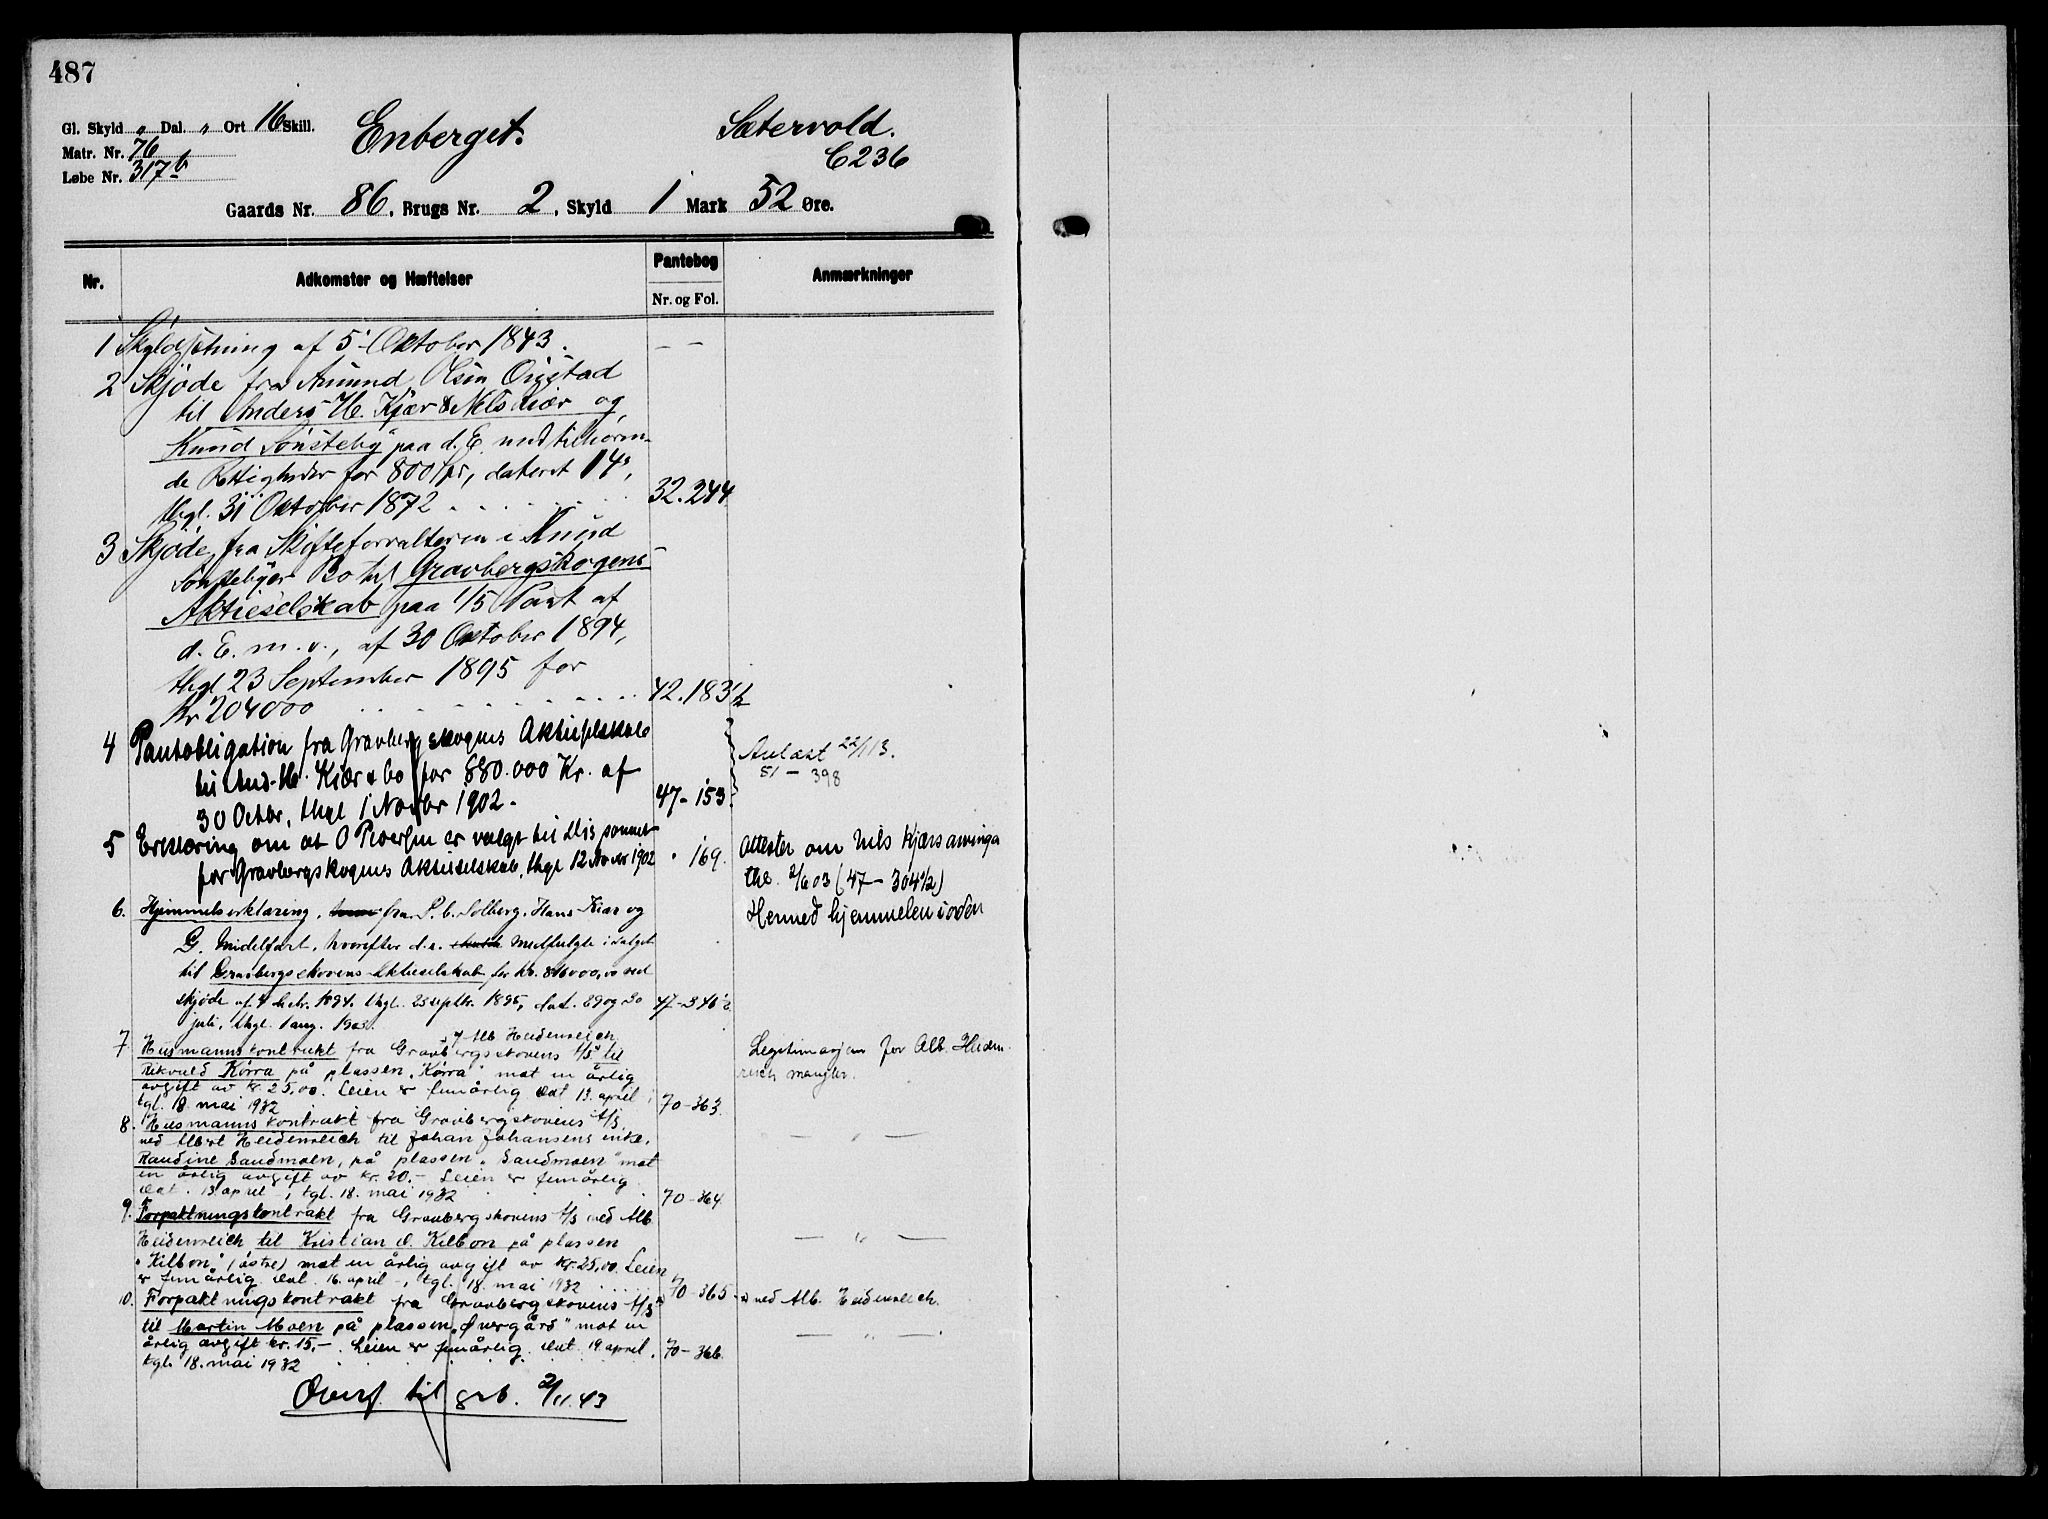 487
Gl. Skyld „ Dal. „ Ort 16 Skill.
Matr. Nr. 76
Løbe Nr. 317 b
Enberget.
Sætervold.
C236
Gaards Nr. 86, Brugs Nr. 2, Skyld 1 Mark 52 Øre.
Nr. Adkomster og Hæftelser Pantebog Nr. og Fol. Anmærkninger
1 Skyldsætning af 5 Oktober 1843. — —
2 Skjøde fra Amund Olsen
til Anders H. Kjær & Nels Kiær og
Knud Sønsteby paa d. E. med tilhøren-
de Rettigheder for 800 , dateret 14,
thgl. 31 Oktober 1872 32.244
3 Skjøde fra Skifteforvalteren i Knud
Sønstebyes Bo til Gravbergskogens
Aktieselskab paa 1/5 Part af
d. E. m. v., af 30 Oktober 1894,
thgl 23 September 1895 for
Kr 204000 42.183½
4 Pantobligation fra Gravbergskogens Aktieselskab
til And. H. Kiær & Co for 880.000 Kr. af
30 Octbr, thgl 1 Novbr 1902. 47-153.
Avlæst 22/1 13.
51 — 398
5 Erklæring om at O Tværsen er valgt til Disponent
for Gravbergskognes Aktieselskab, thgl 12 Novbr 1902 " 169.
Attester om Nils Kjærs arvinga
thl. 2/6 03 (47 — 304½)
Hermed hjemmelen i orden
6. Hjemmelserklæring, fra P. C. Solberg, Hans Kiær og
G. Midelfart, hvorefter d. e. medfulgte i salget
til Gravbergskovens Aktieselskab for Kr. 816000,00 ved
skjøde af 4 1894, thgl. 23 septbr. 1895, dat. 29 og 30
juli, thgl. 1 aug. 1903. 47-346½
7. Husmannskontrakt fra Gravbergsskovens A/S v/ Alb Heidenreich til
Rekvald Kørra på plassen "Kørra" mot en årlig
avgift av kr. 25,00. Leien er femårlig Dat 13. april,
tgl. 18. mai 1932 70-363.
Legitimasjon for Alb. Heiden-
reich mangler.
8. Husmannskontrakt fra Gravbergskovens A/S,
ved Albert Heidenreich til Johan Johansens enke,
Randine Sandmoen, på plassen "Sandmoen" mot
en årlig avgift av kr. 20,- Leien er femårlig
Dat. 13. april -, tgl. 18. mai 1932 70-364.
— " —
9. Forpaktningskontrakt fra Gravbergskovens A/S ved Alb.
Heidenreich til Kristian O. Kilbon på plassen
"Kilbon" (østre) mot en årlig avgift av kr. 25,00. Leien
er femårlig. Dat. 16. april -, tgl. 18. mai 1932 70-365.
— " —
10. Forpaktningskontrakt fra Gravbergskovens A/S x)
til Martin Moen på plassen "Øvergård" mot en
årlig avgift kr. 15,-. Leien er femårlig. Dat. 19. april,
tgl. 18. mai 1932 70-366.
x) ved Alb. Heidenreich.
— " —
Overf. til grb. 2/11.43